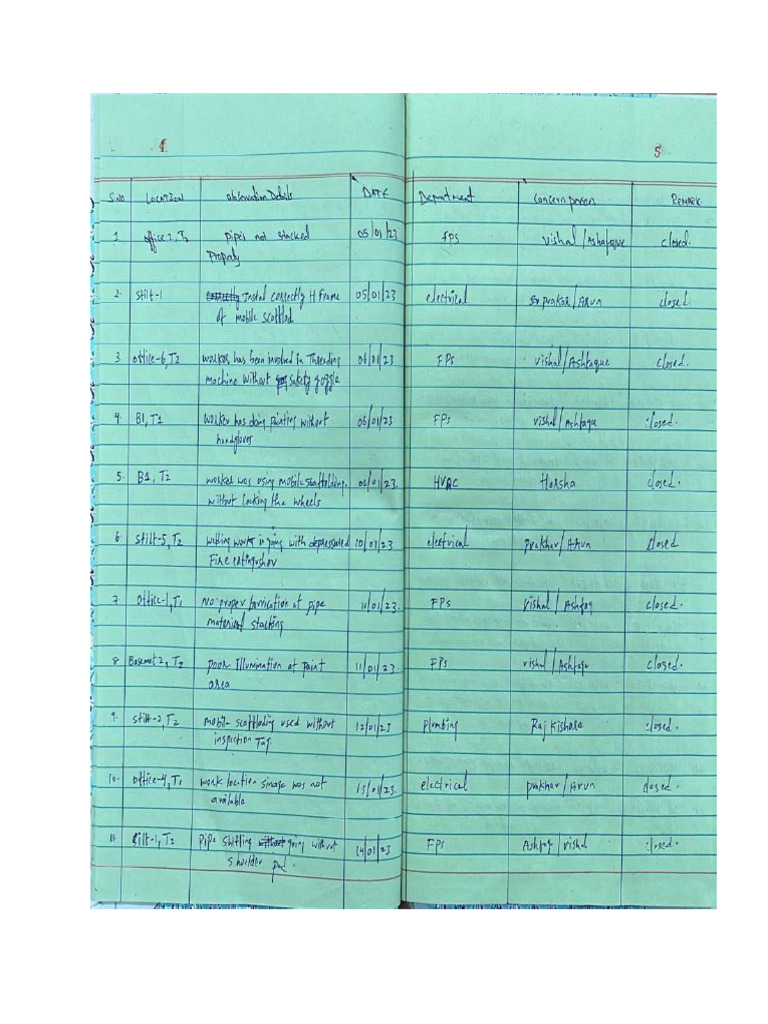 4
5
S.NO LOCATION observation Details DATE Department Concern person REMARK
1 office 2, T2 pipe's not stacked 05/01/23 FPS vishal / Ashafaque closed.
Properly
2. Stilt-1 Instal correctly H Frame 05/01/23 electrical prakar/Arun closed
of mobile scaffold
3 office-6, T2 worker has been involved in Threading 06/01/23 FPs vishal/Ashfaque closed.
machine without safety goggle
4. B1, T1 worker has doing painting without 06/01/23 FPs vishal/Ashfaque closed.
handgloves
5. B1, T2 worker was using mobile scaffolding 06/01/23. HVAC Harsha closed.
without locking the wheels
6. Stilt-5, T2 welding work is going with depressured 10/01/23 electrical prakhar/Arun closed
Fire extingushor
7. Office-1, T1 No proper barrication at pipe 11/01/23. FPs vishal/Ashfaq closed.
material stacking
8 Basemet 2, T2 poor Illumination at paint 11/01/23 FPs vishal/Ashfaqe closed.
area
9. Stilt-2, T2 mobile scaffolding used without 12/01/23 plumbing Raj kishore closed.
inspection Tag
10. Office-4, T1 work location sinage was not 13/01/23. electrical prakhar/Arun closed.
available
11 Stilt-1, T2 Pipe shifting going without 14/01/23 FPs Ashfaq/vishal closed.
Shoulder Pad.